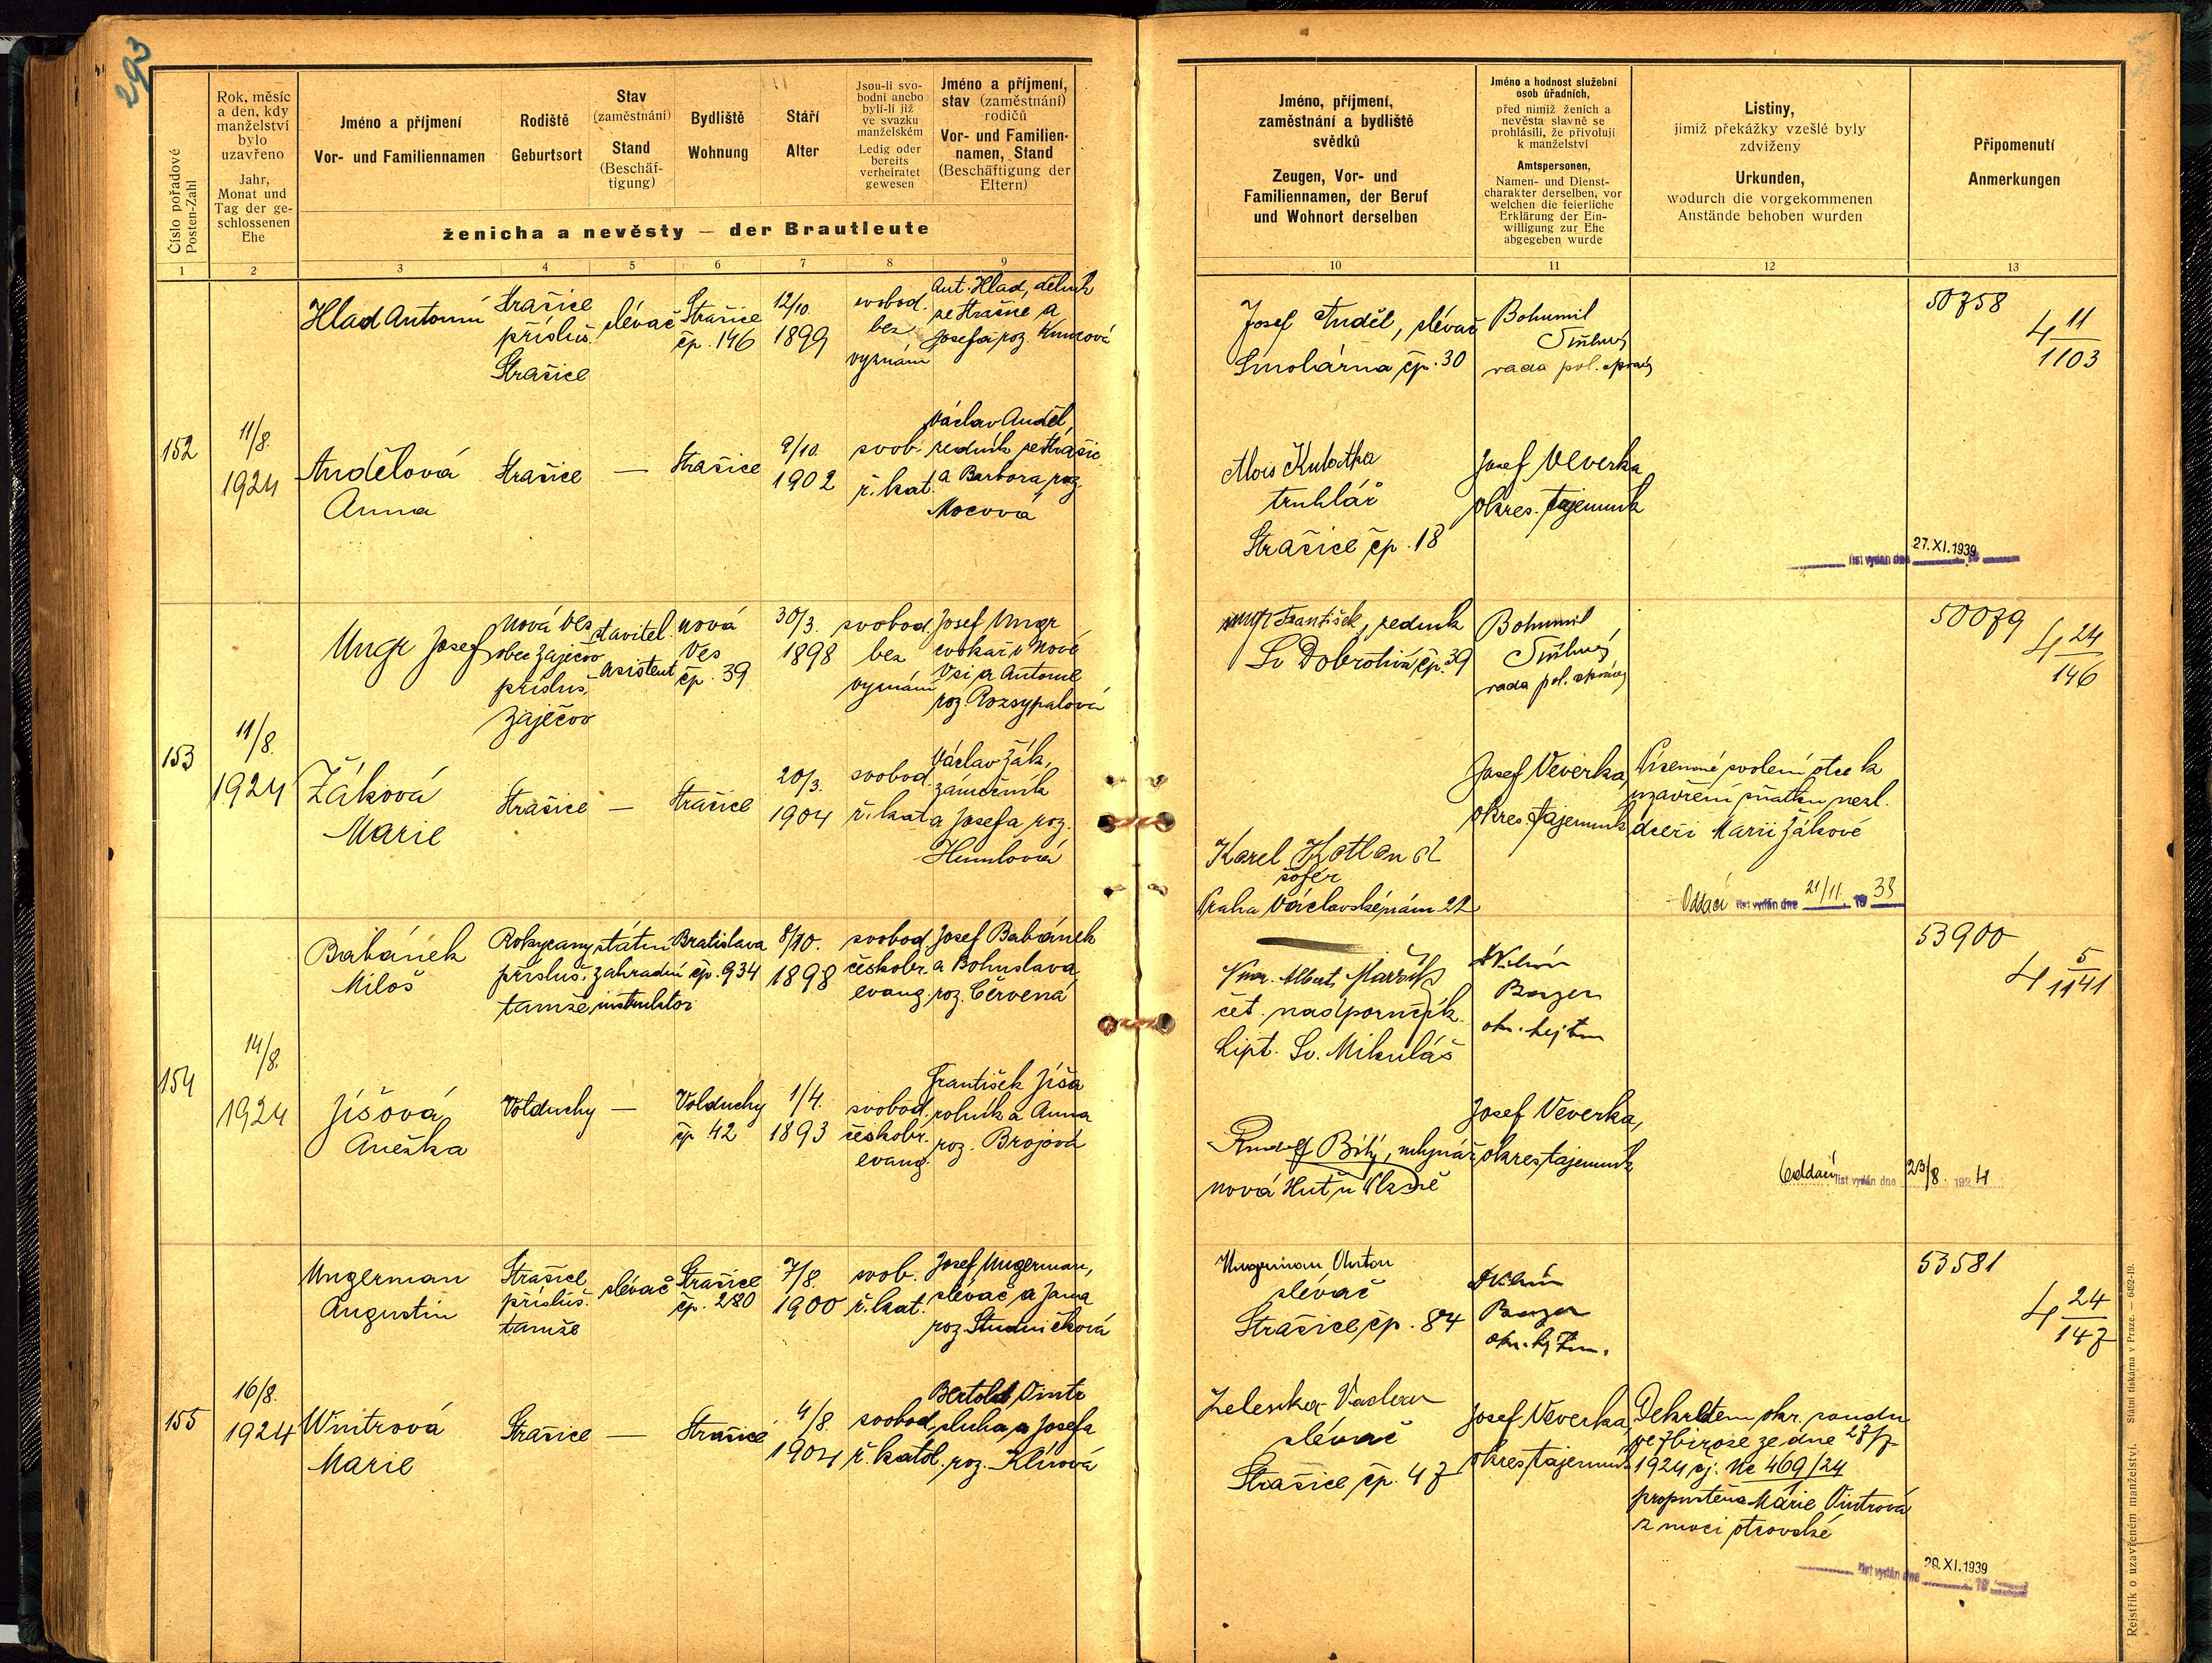 293
Číslo pořadové
Posten-Zahl
Rok, měsíc
a den, kdy
manželství
bylo
uzavřeno
Jahr,
Monat und
Tag der ge-
schlossenen
Ehe
Jméno a příjmení
Vor- und Familiennamen
Rodiště
Geburtsort
Stav
(zaměstnání)
Stand
(Beschäf-
tigung)
Bydliště
Wohnung
Stáří
Alter
Jsou-li svo-
bodni anebo
byli-li již
ve svazku
manželském
Ledig oder
bereits
verheiratet
gewesen
Jméno a příjmení,
stav (zaměstnání)
rodičů
Vor- und Familien-
namen, Stand
(Beschäftigung der
Eltern)
ženicha a nevěsty — der Brautleute
1 2 3 4 5 6 7 8 9
Jméno, příjmení,
zaměstnání a bydliště
svědků
Zeugen, Vor- und
Familiennamen, der Beruf
und Wohnort derselben
Jméno a hodnost služební
osob úřadních,
před nimiž ženich a
nevěsta slavně se
prohlásili, že přivolují
k manželství
Amtspersonen,
Namen- und Dienst-
charakter derselben, vor
welchen die feierliche
Erklärung der Ein-
willigung zur Ehe
abgegeben wurde
Listiny,
jimiž překážky vzešlé byly
zdviženy
Urkunden,
wodurch die vorgekommenen
Anstände behoben wurden
Připomenutí
Anmerkungen
10 11 12 13
152
11/8.
1924
Hlad Antonín
Strašice
přísluš.
Strašice
slévač
Strašice
čp. 146
12/10.
1899
svobod.
bez
vyznání
Ant. Hlad, dělník
ze Strašic a
Josefa roz. Kuncová
Andělová
Anna
Strašice
—
Strašice
9/10.
1902
svob.
ř. kat.
Václav Anděl,
zedník ze Strašic
a Barbora roz.
Mocová
Josef Anděl, slévač
Smolárna čp. 30
Alois Kubátka
truhlář
Strašice čp. 18
Bohumil
rada pol. správy
Josef Veverka
okres. tajemník
50758
4 11/1103
list vydán dne 27. XI. 1939
153
11/8.
1924
Ungr Josef
Nová Ves
obec Zaječov
přísluš.
Zaječov
stavitel.
asistent
Nová
Ves
čp. 39
30/3.
1898
svobod.
bez
vyznání
Josef Ungr
cvokař v Nové
Vsi a Antonie
roz. Rozsypalová
Žáková
Marie
Strašice
—
Strašice
20/3.
1904
svobod.
ř. kat.
Václav Žák,
zámečník
a Josefa roz.
Humlová
Ungr František, zedník
Sv Dobrotivá čp. 39
Karel
šofér
Praha Václavské nám 22
Bohumil
rada pol. správy
Josef Veverka,
okres. tajemník
Písemné svolení otce k
uzavření sňatku nezl.
dceři Marii Žákové
Oddací list vydán dne 21/11. 19 38
50079
4 24/146
154
14/8.
1924
Babánek
Miloš
Rokycany
přísluš.
tamže
státní
zahradní
instruktor
Bratislava
čp. 934
8/10.
1898
svobod.
českobr.
evang.
Josef Babánek
a Bohuslava
roz. Červená
Jíšová
Anežka
Volduchy
—
Volduchy
čp 42
1/4.
1893
svobod.
českobr.
evang.
František Jíša
rolník a Anna
roz. Brojová
Albert
čet. nadporučík
Lipt. Sv. Mikuláš
Rudolf Bílý, mlynář
Nová Huť u Plzně
okr. hejtm
Josef Veverka,
okres. tajemník
53900
4 5/1141
Oddací list vydán dne 23/8. 1924
155
16/8.
1924
Ungerman
Augustin
Strašice
přísluš.
tamže
slévač
Strašice
čp. 280
7/8.
1900
svob.
ř. kat.
Josef Ungerman,
slévač a Jana
roz. Studničková
Vintrová
Marie
Strašice
—
Strašice
4/8.
1904
svobod.
ř. katol.
Bertold Vintr
sluha a Josefa
roz. Klírová
Ungerman Anton
slévač
Strašice čp. 84
Zelenka Vaclav
slévač
Strašice čp. 47
okr. hejtm.
Josef Veverka,
okres. tajemník
Dekretem okr. soudu
ve Zbiroze ze dne 28/7
1924 čj. Nc 469/24
propuštěna Marie Vintrová
z moci otcovské
53581
4 24/147
list vydán dne 20. XI. 1939
Rejstřík o uzavřeném manželství. Státní tiskárna v Praze. — 6402-19.